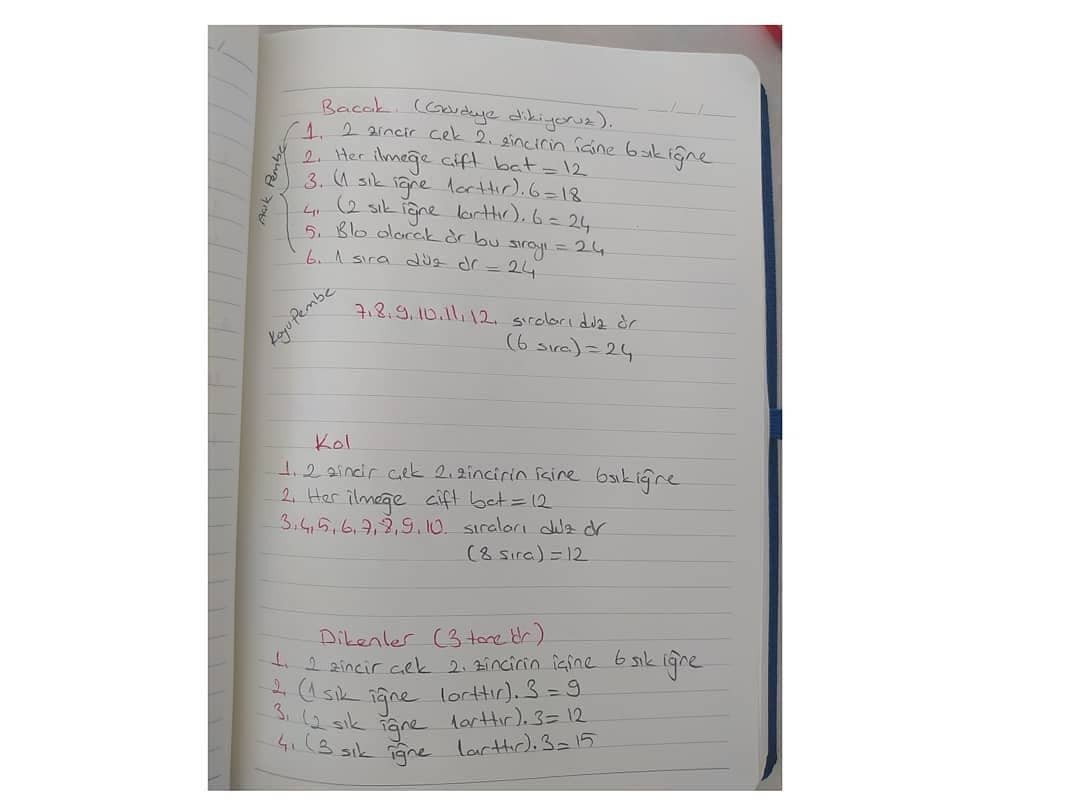 Bacak. (Gövdeye dikiyoruz).
Açık Pembe
1. 2 zincir çek 2. zincirin içine 6 sık iğne
2. Her ilmeğe çift bat = 12
3. (1 sık iğne 1arttır). 6 = 18
4. (2 sık iğne 1arttır). 6 = 24
5. Blo olarak ör bu sırayı = 24
6. 1 sıra düz ör = 24
Koyu Pembe
7, 8, 9, 10, 11, 12. sıraları düz ör
(6 sıra) = 24
Kol
1. 2 zincir çek 2. zincirin içine 6 sık iğne
2. Her ilmeğe çift bat = 12
3, 4, 5, 6, 7, 8, 9, 10. sıraları düz ör
(8 sıra) = 12
Dikenler (3 tane ör)
1. 2 zincir çek 2. zincirin içine 6 sık iğne
2. (1 sık iğne 1arttır). 3 = 9
3. (2 sık iğne 1arttır). 3 = 12
4. (3 sık iğne 1arttır). 3 = 15